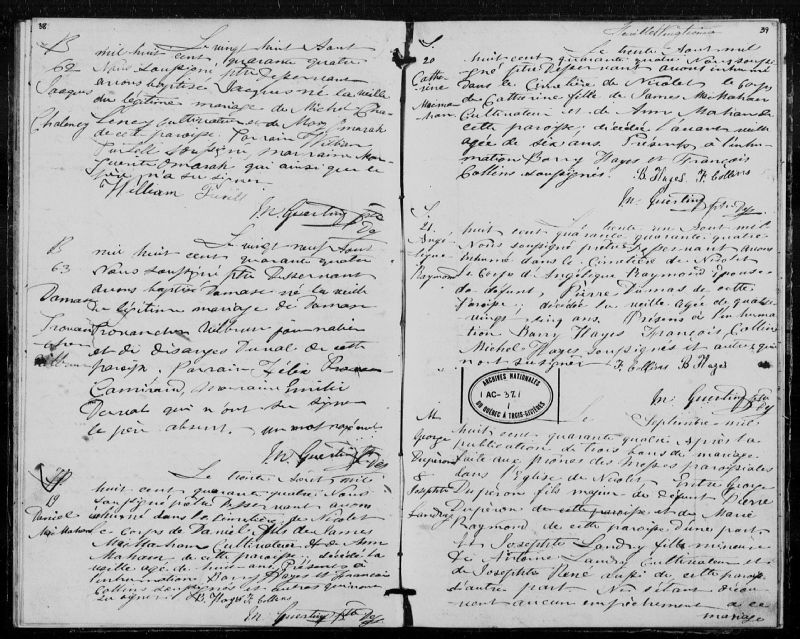 38
B
62
Jacques
Chalency
Le vingt huit Aout
mil huit cent quarante quatre
Nous soussigné ptre desservant
avons baptisé Jacques né la veille
du légitime mariage de Michel
cultivateur et de Mary Omarah
de cette paroisse. Parrain William
Purtell soussigné, marraine
Omarah qui ainsi que le
père n'a su signer.
William Purtell
M. Quertin ptre
B
63
Damase
Le vingt neuf Aout
mil huit cent quarante quatre
Nous soussigné ptre Desservant
avons baptisé Damase né la veille
du légitime mariage de Damase
journalier
et de Desanges Duval de cette
paroisse. Parrain Félix
Camirand, marraine Emilie
Duval qui n'ont su signer
le père absent. un mot rayé nul
M. Quertin ptre
S
19
Daniel
MacMahon
Le trente Aout mil
huit cent quarante quatre Nous
soussigné prêtre Desservant avons
inhumé dans le Cimetière de Nicolet
le corps de Daniel fils de James
MacMahon Cultivateur & de Ann
Mahan de cette paroisse, décédé la
veille agé de huit ans. Présents à
l'inhumation Barry Hayes et Francois
Collins soussignés et autres qui n'ont
su signer
B. Hayes F. Collins
M. Quertin ptre
39
S.
20
Cathe
rine
Macma
hon
Le trente Aout mil
huit cent quarante quatre Nous soussi
gné ptre Desservant avons inhumé
dans le Cimetière de Nicolet le Corps
de Catherine fille de James MacMahon
Cultivateur et de Ann Mahan de
cette paroisse, décédée l'avant veille
agée de six ans. Présents à l'inhu
mation Barry Hayes et François
Collins soussignés.
B. Hayes F. Collins
M. Quertin ptre
S.
21
Angé
lique
Raymond
Le trente un Aout mil
huit cent quarante quatre
Nous soussigné prêtre Desservant avons
inhumé dans le Cimetière de Nicolet
le Corps d'Angélique Raymond épouse
de défunt Pierre Dumas de cette
paroisse, décédée la veille agée de quatre
vingt cinq ans. Présens à l'inhuma
tion Barry Hayes François Collins
Michel Hayes soussignés et autres qui
n'ont su signer
F Collins B Hayes
M. Quertin ptre
ARCHIVES NATIONALES
1 AC-37/
DU QUÉBEC À TROIS-RIVIÈRES
M
George
Dupéron
&
Josephte
Landry
Le
Septembre mil
huit cent quarante quatre Après la
publication de trois bans de mariage
faite aux prônes des Messes paroissiales
dans l'Eglise de Nicolet Entre George
Dupéron fils majeur de défunt Pierre
Dupéron de cette paroisse et de Marie
Raymond de cette paroisse d'une part
et Josephte Landry fille mineure
de Antoine Landry Cultivateur et
de Josephte René aussi de cette paroisse
d'autre part Ne s'étant décou
vert aucun empêchement à ce
mariage